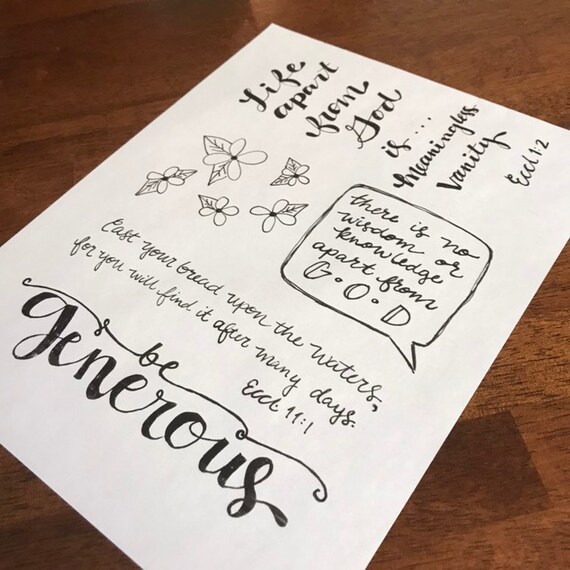 Life
apart
from
God
is ....
Meaningless
Vanity
Eccl 1:2
there is no
wisdom or
knowledge
apart from
G.O.D
Cast your bread upon the waters,
for you will find it after many days.
Eccl. 11:1
be
generous